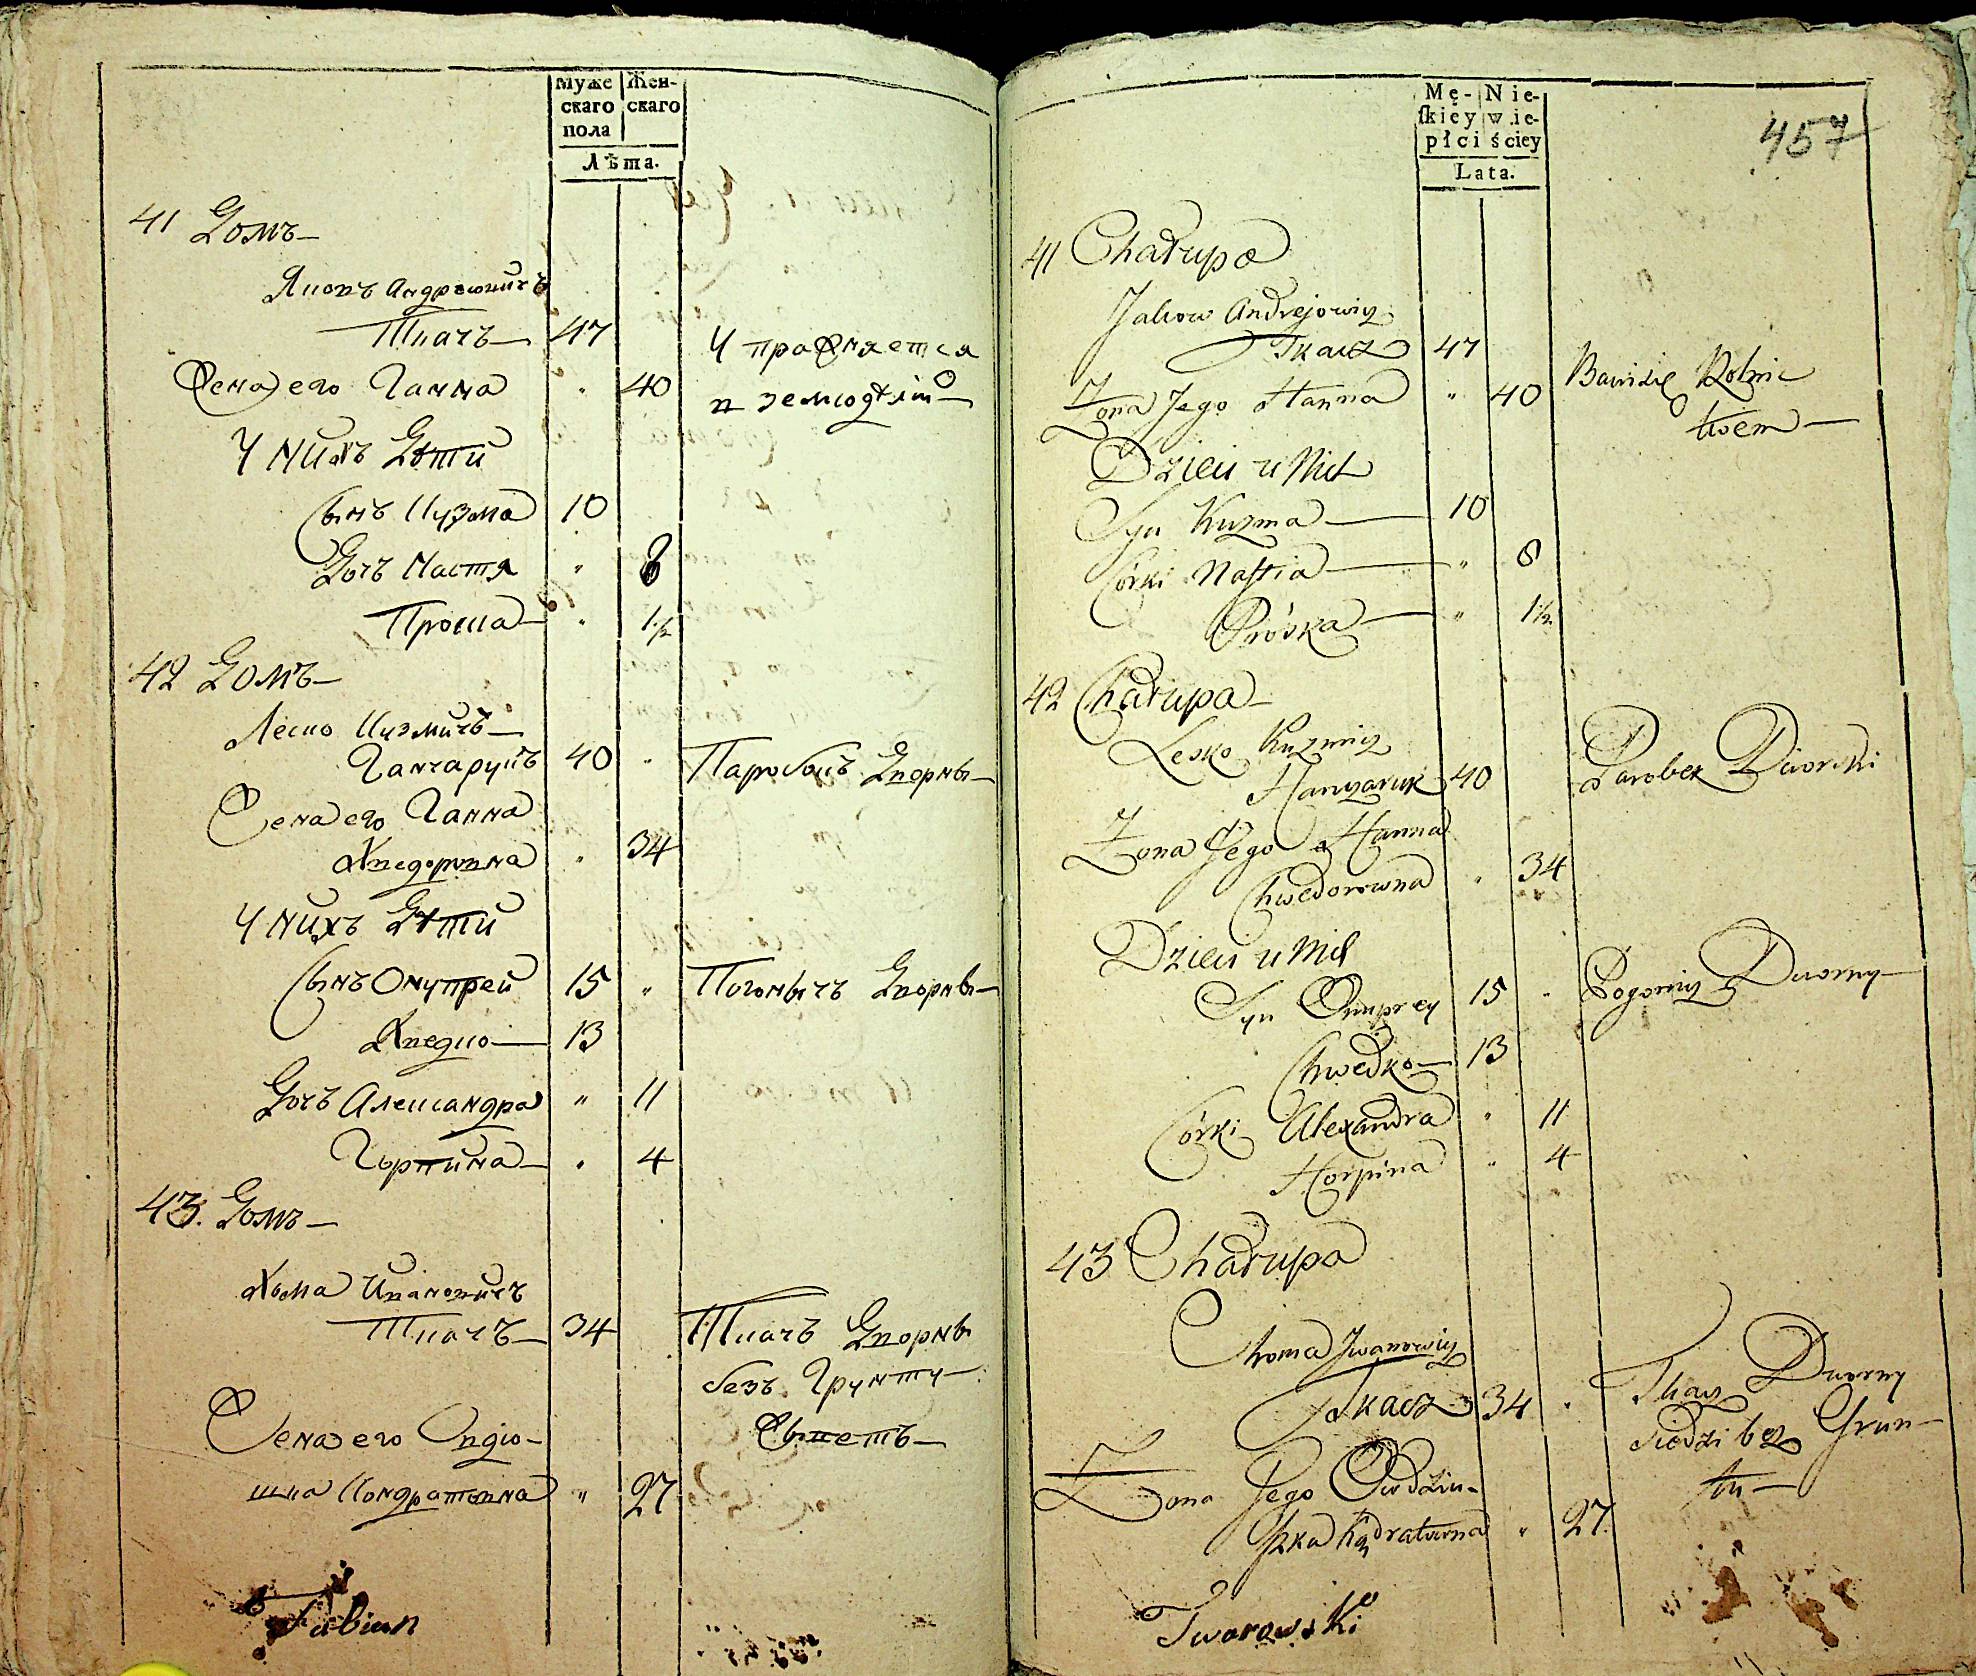 Муже
скаго
пола
Жен-
скаго
Лѣта.
41 Домъ
Яковъ Андрѣевичъ
Ткачъ 47
Жена его Ганна " 40
Упражняется
в земледѣлии
У нихъ Дѣти
Сынъ Кузма 10
Дочь Настя " 8
Проска " 1½
42 Домъ
Леско Кузмичъ
Ганчарукъ 40 "
Паробокъ Дворны
Жена его Ганна
Хведоровна " 34
У нихъ Дѣти
Сынъ Онупрей 15 "
Погоничъ Дворны
Хведко 13
Дочь Александра " 11
Гырпина " 4
43. Домъ
Хома Ивановичъ
Ткачъ 34
Ткачъ Дворны
безъ Грунту
Жена его Овдю-
шка Кондратовна " 27
Fabian
Mę-
skiey
płci
Nie-
wie-
ściey
Lata.
457
41 Chałupa
Jakow Andrejowicz
Tkacz 47
Zona Jego Hanna " 40
Bawi się Rolnic
twem
Dzieci u Nich
Syn Kuzma 10
Córki Nastia " 8
Próska " 1½
42 Chałupa
Lesko Kuzmicz
Hanczaruk 40
Parobek Dworski
Zona Jego Hanna
Chwedorowna " 34
Dzieci u Nich
Syn Onuprey 15 "
Pogonicz Dworny
Chwedko 13
Córki Alexandra " 11
Horpina " 4
43 Chałupa
Choma Jwanowicz
Tkacz 34 "
Tkacz Dworny
siedzi bez Grun-
tu
Zona Jego Owdziu-
szka Kądratowna " 27
Tworowski